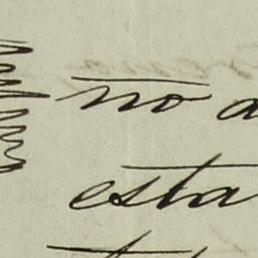 no a
esta